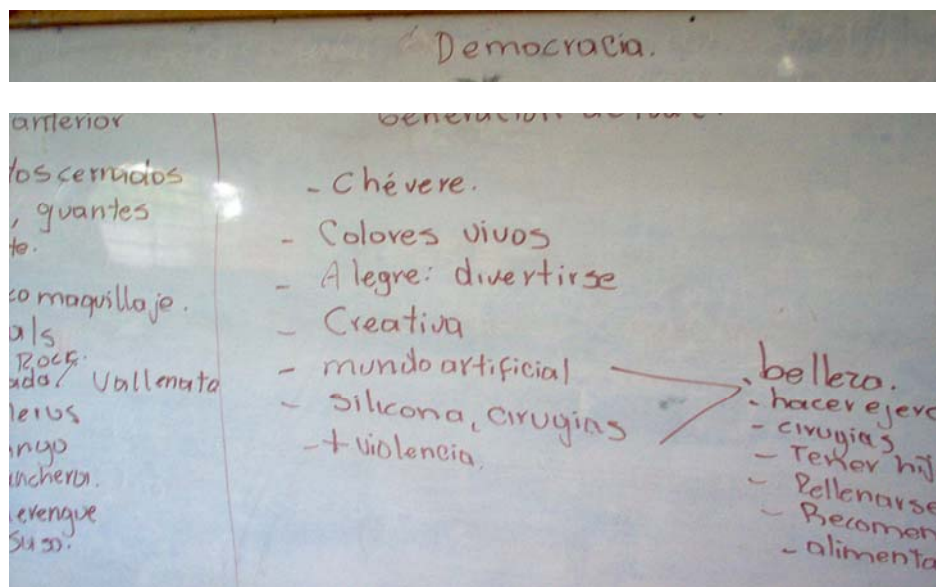 Democracia.
anterior
Generación actual.
los cerrados
, guantes
te.
co maquillaje.
als
Rock.
ada/ Vallenata
leros
ngo
ncheras.
erengue
- Chévere.
- Colores vivos
- Alegre: divertirse
- Creativa
- mundo artificial
- silicona, cirugias
- + violencia.
belleza.
- hacer ejerc
- cirugias
- Tener hij
- Rellenarse
- Recomen
- alimenta